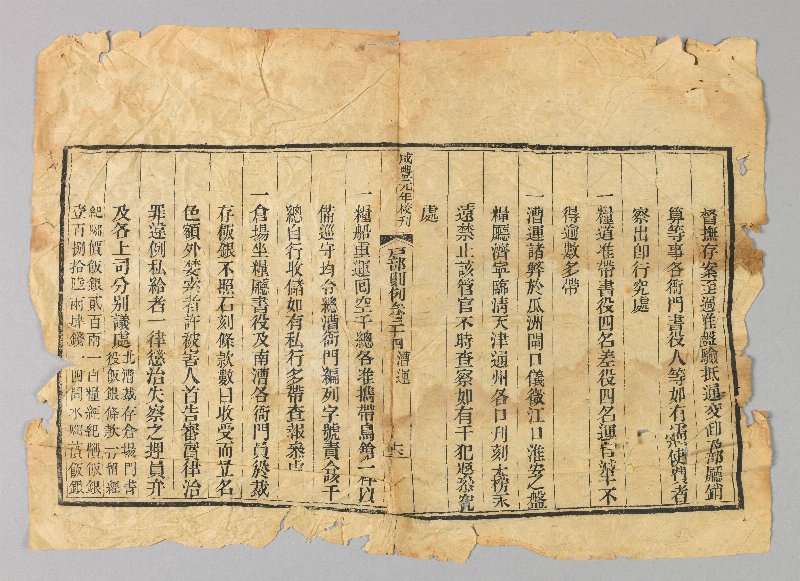 督撫存案至過淮盤驗抵通交卸及部廳銷
算等事各衙門書役人等如有需使費者
察出即行究處
一糧道准帶書役四名差役四名運官弁不
得逾數多帶
一漕運諸弊於瓜洲閘口儀徵江口淮安之盤
糧廳濟寧臨清天津通州各口刋刻木榜永
遠禁止該管官不時查察如有干犯懲參究
處
咸豐元年校刋
戸部則例卷三十四 漕運
一糧船重運回空千總各准攜帶鳥鎗一杆以
備巡守均令總漕衙門編列字號責令該千
總自行收儲如有私行多帶查報參處
一倉場坐糧廳書役及南漕各衙門員役裁
存飯銀不照石刻條款數目收受而立名
色額外婪索者許被害人首告審實律治
罪違例私給者一律懲治失察之押員弁
及各上司分别議處北漕裁存倉場門書
役飯銀條款一茶經
紀 價飯銀貳百兩一白糧經紀 飯銀
壹百捌拾陸兩 錢一四閘水 價飯銀